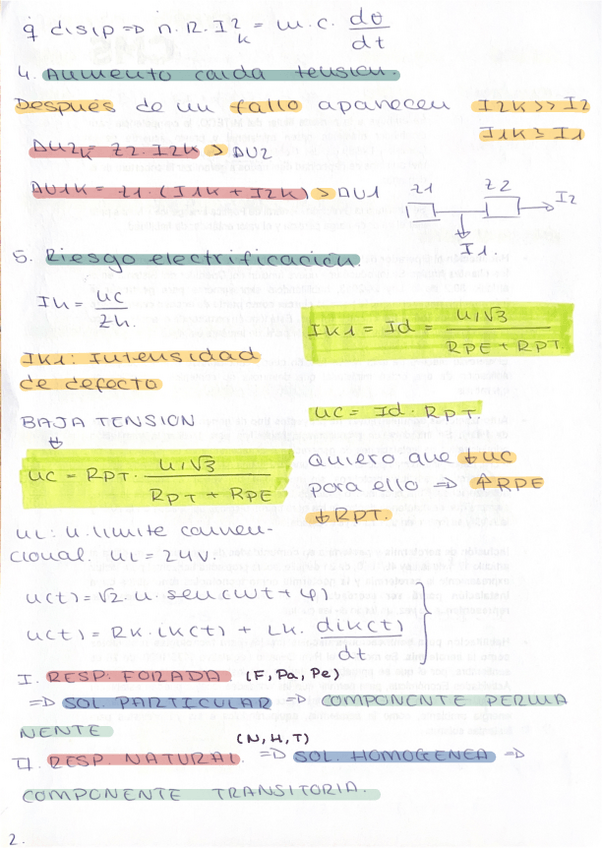 q̇ disip => n.R.I2k = m.c. dθ/dt
4. Aumento caída tension.
Después de un fallo aparecen I2K>> I2
I1K ≥ I1
ΔU2k = Z2.I2K > ΔU2
ΔU1K = Z1.(I1K + I2K) > ΔU1
Z1 Z2 I2
I1.
5. Riesgo electrificación.
Ih = uc/Zh.
IK1 = Id = U/√3 / RPE + RPT
IK1: Intensidad
de defecto
uc = Id. RPT.
BAJA TENSION
uc = RPT. U/√3 / RPT + RPE
Quiero que ↓uc
para ello => ↑RPE
↓RPT.
UL: U. límite conven-
cional. UL = 24V.
u(t) = √2. u. sen(wt + φ)
u(t) = RK. iK(t) + LK. diK(t)/dt
I. RESP. FORADA (F, Pa, Pe)
=> SOL. PARTICULAR => COMPONENTE PERMA
NENTE
(N, H, T)
II. RESP. NATURAL. => SOL. HOMOGENEA =>
COMPONENTE TRANSITORIA.
2.